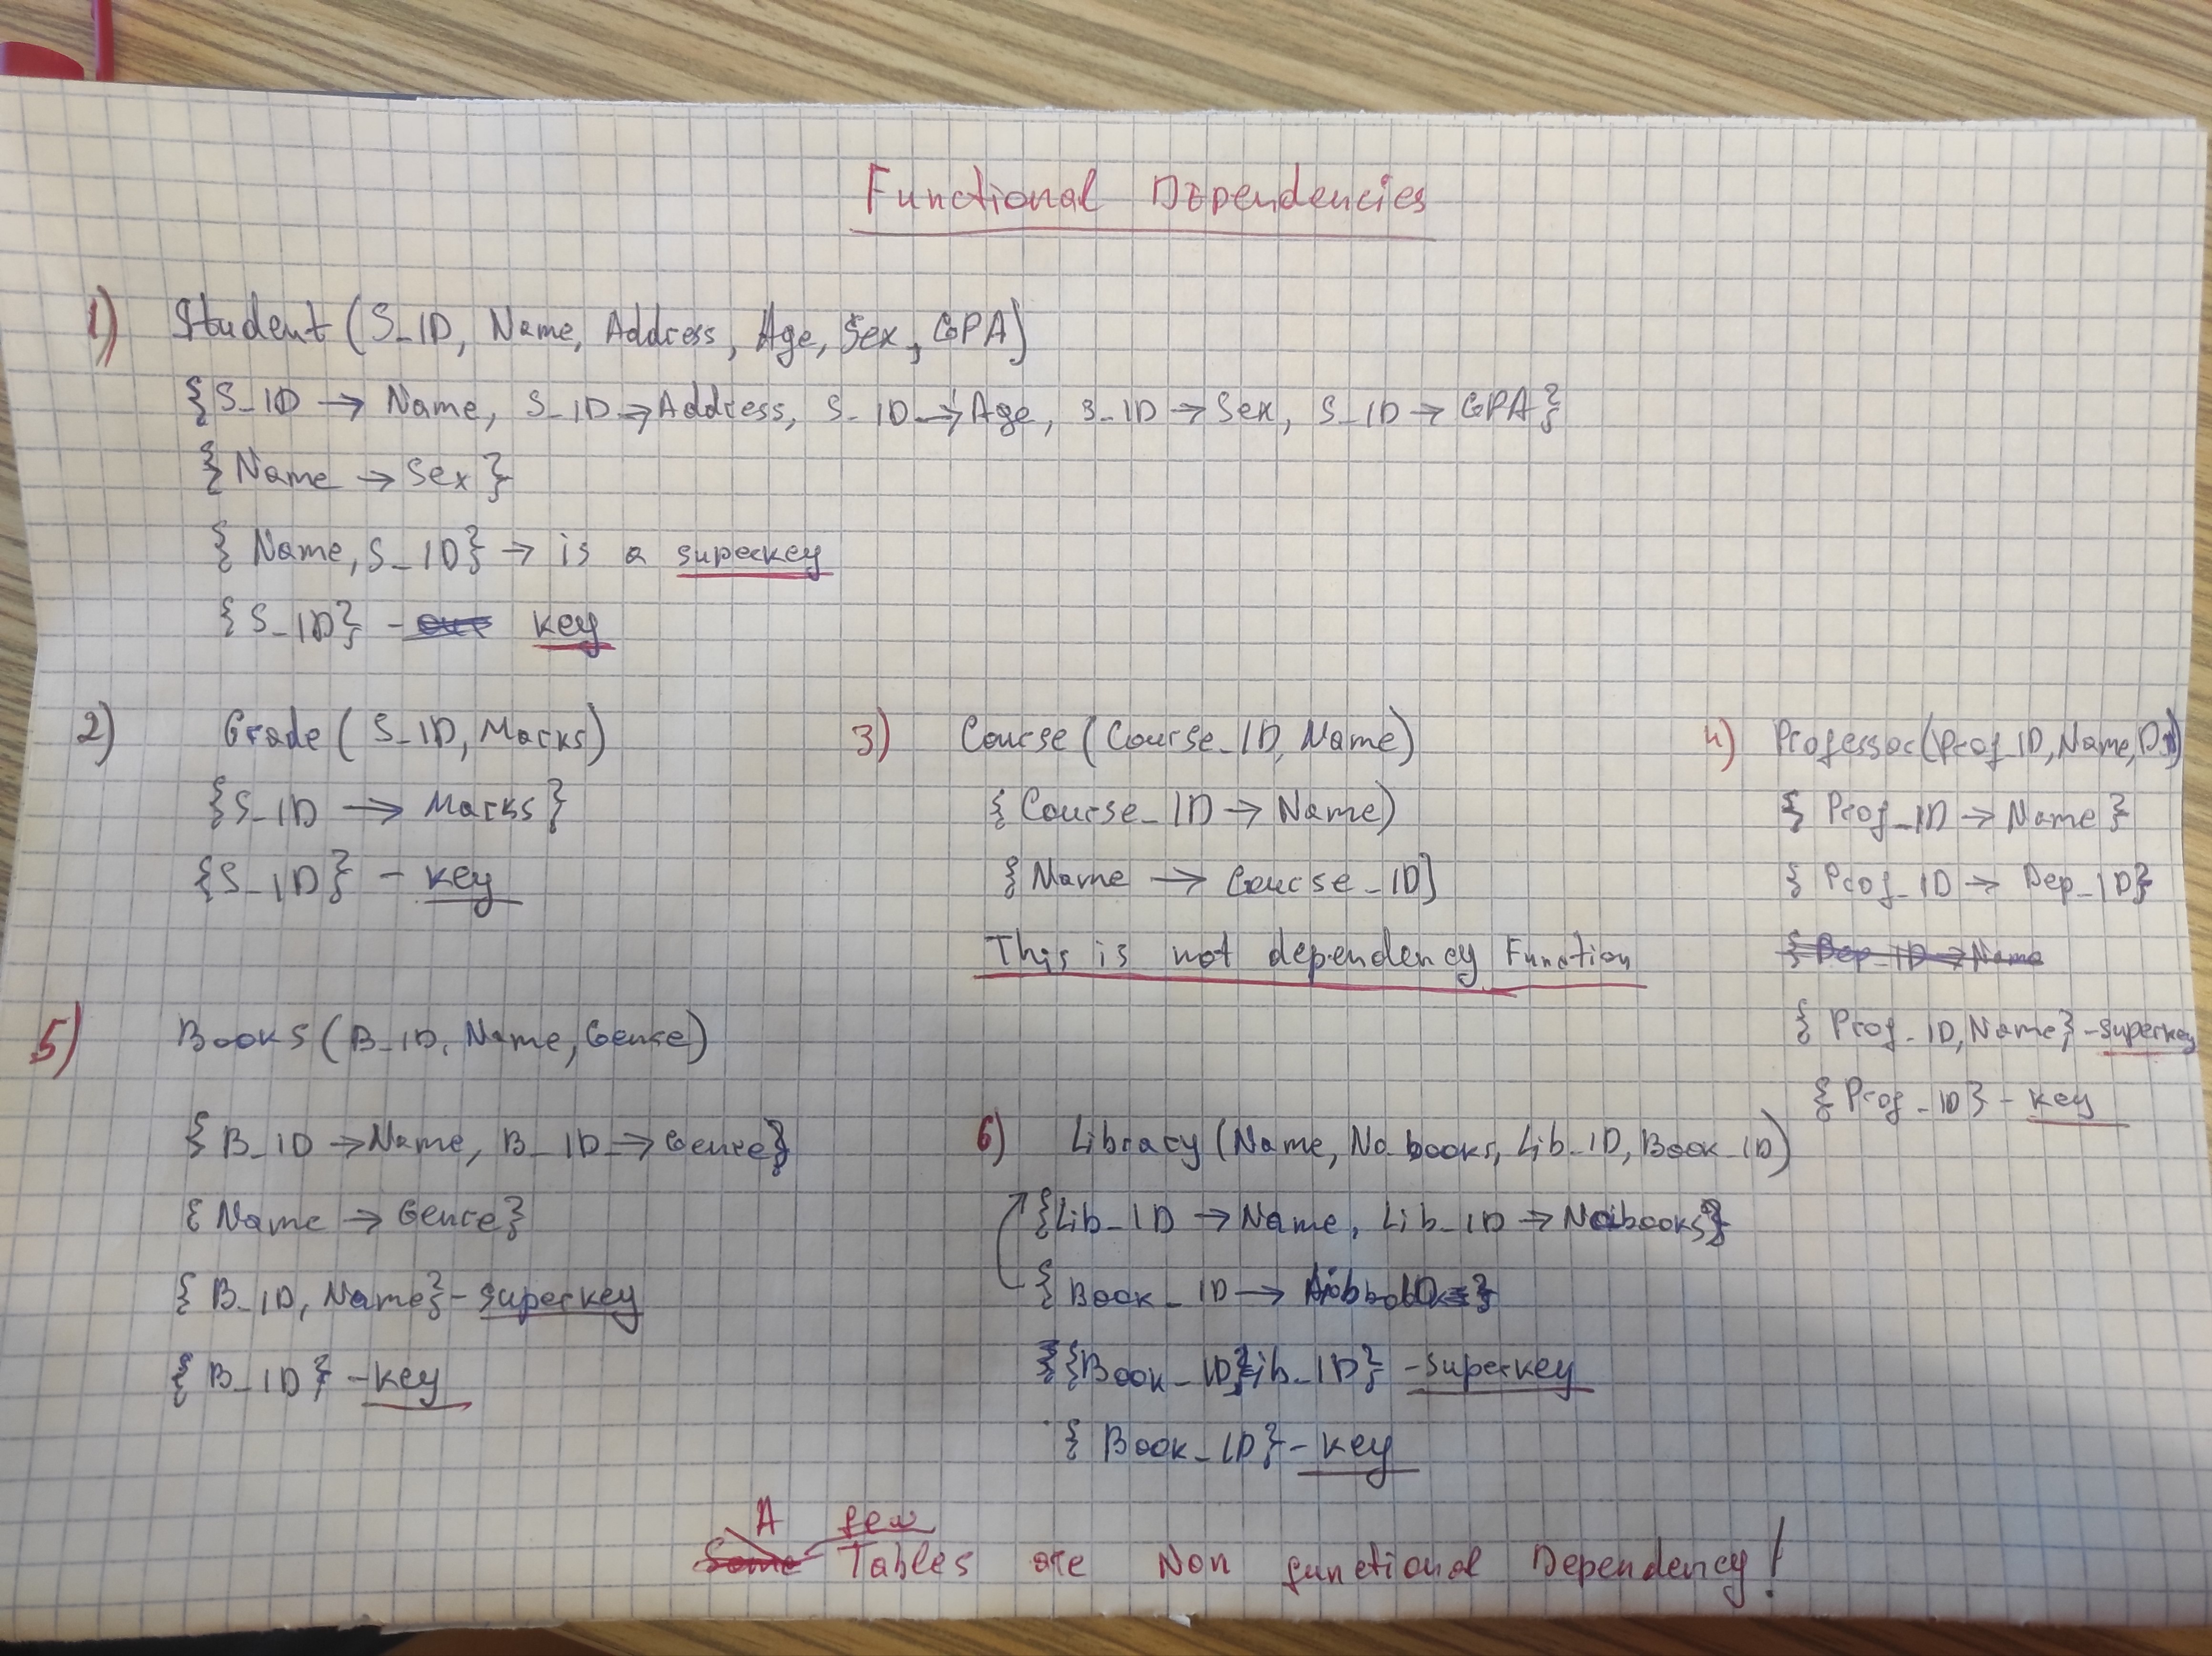 Functional Dependencies
1) Student (S_ID, Name, Address, Age, Sex, GPA)
{S_ID → Name, S_ID → Address, S_ID → Age, S_ID → Sex, S_ID → GPA}
{Name → Sex}
{Name, S_ID} → is a superkey
{S_ID} - key
2) Grade (S_ID, Marks)
{S_ID → Marks}
{S_ID} - key
3) Course (Course_ID, Name)
{Course_ID → Name)
{Name → Course_ID]
This is not dependency Function
4) Professor (Prof_ID, Name, D
{Prof_ID → Name}
{Prof_ID → Dep_ID}
{Dep_ID → Name
{Prof_ID, Name} - superkey
{Prof_ID} - key
5) Books (B_ID, Name, Genre)
{B_ID → Name, B_ID → Genre}
{Name → Genre}
{B_ID, Name} - superkey
{B_ID} - key
6) Library (Name, No_books, Lib_ID, Book_ID)
{Lib_ID → Name, Lib_ID → No books}
{Book_ID →
{Book_ID, Lib_ID} - superkey
{Book_ID} - key
A few
Some Tables are Non functional Dependency!